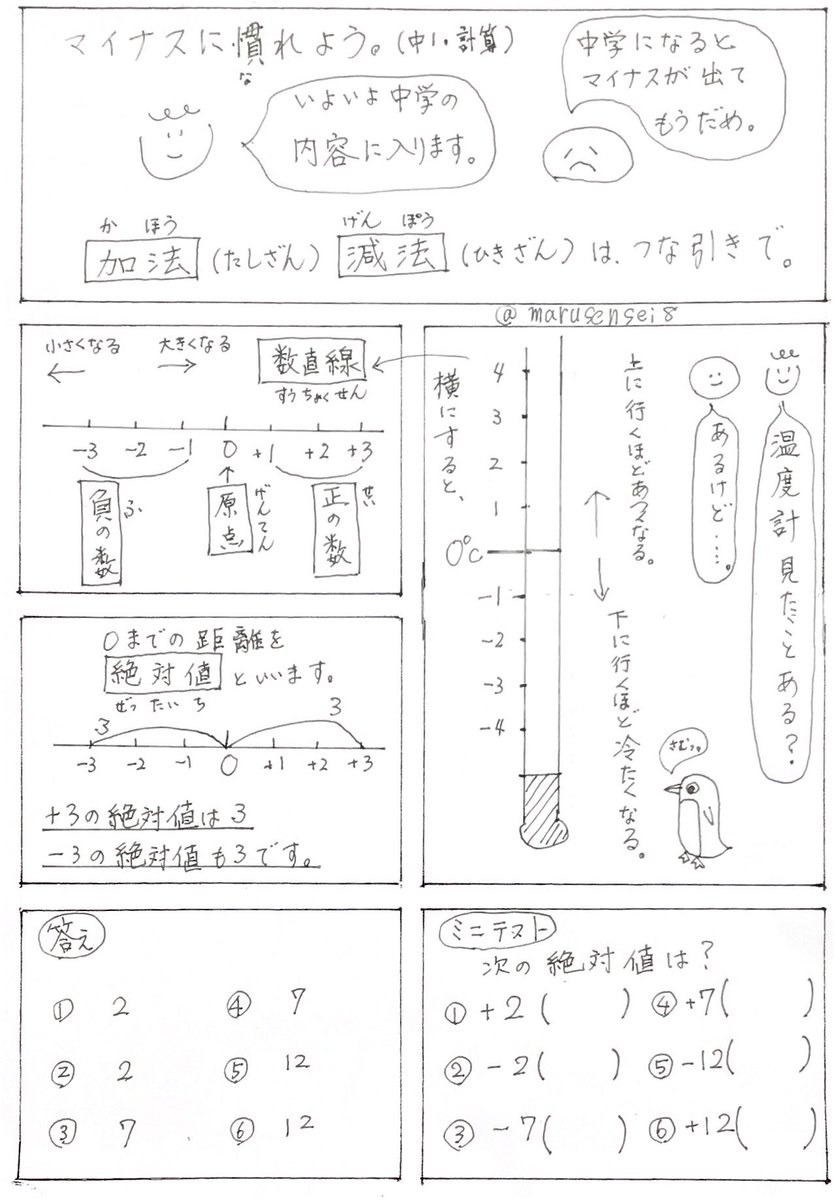 マイナスに慣れよう。(中1・計算)
な
いよいよ中学の
内容に入ります。
中学になると
マイナスが出て
もうだめ。
かほう げんぽう
加法(たしざん)減法(ひきざん)は、つな引きで。
@marusensei8
温度計見たことある?
あるけど‥‥。
上に行くほどあつくなる。
下に行くほど冷たくなる。
さむっ。
4
3
2
1
0℃
-1
-2
-3
-4
横にすると、
小さくなる 大きくなる 数直線
すうちょくせん
-3 -2 -1 0 +1 +2 +3
負の数 ふ
原点 げんてん
正の数 せい
0までの距離を
絶対値といいます。
ぜったいち
3 3
-3 -2 -1 0 +1 +2 +3
+3の絶対値は3
-3の絶対値も3です。
ミニテスト
次の絶対値は?
① +2( ) ④ +7( )
② -2( ) ⑤ -12( )
③ -7( ) ⑥ +12( )
答え
① 2 ④ 7
② 2 ⑤ 12
③ 7 ⑥ 12